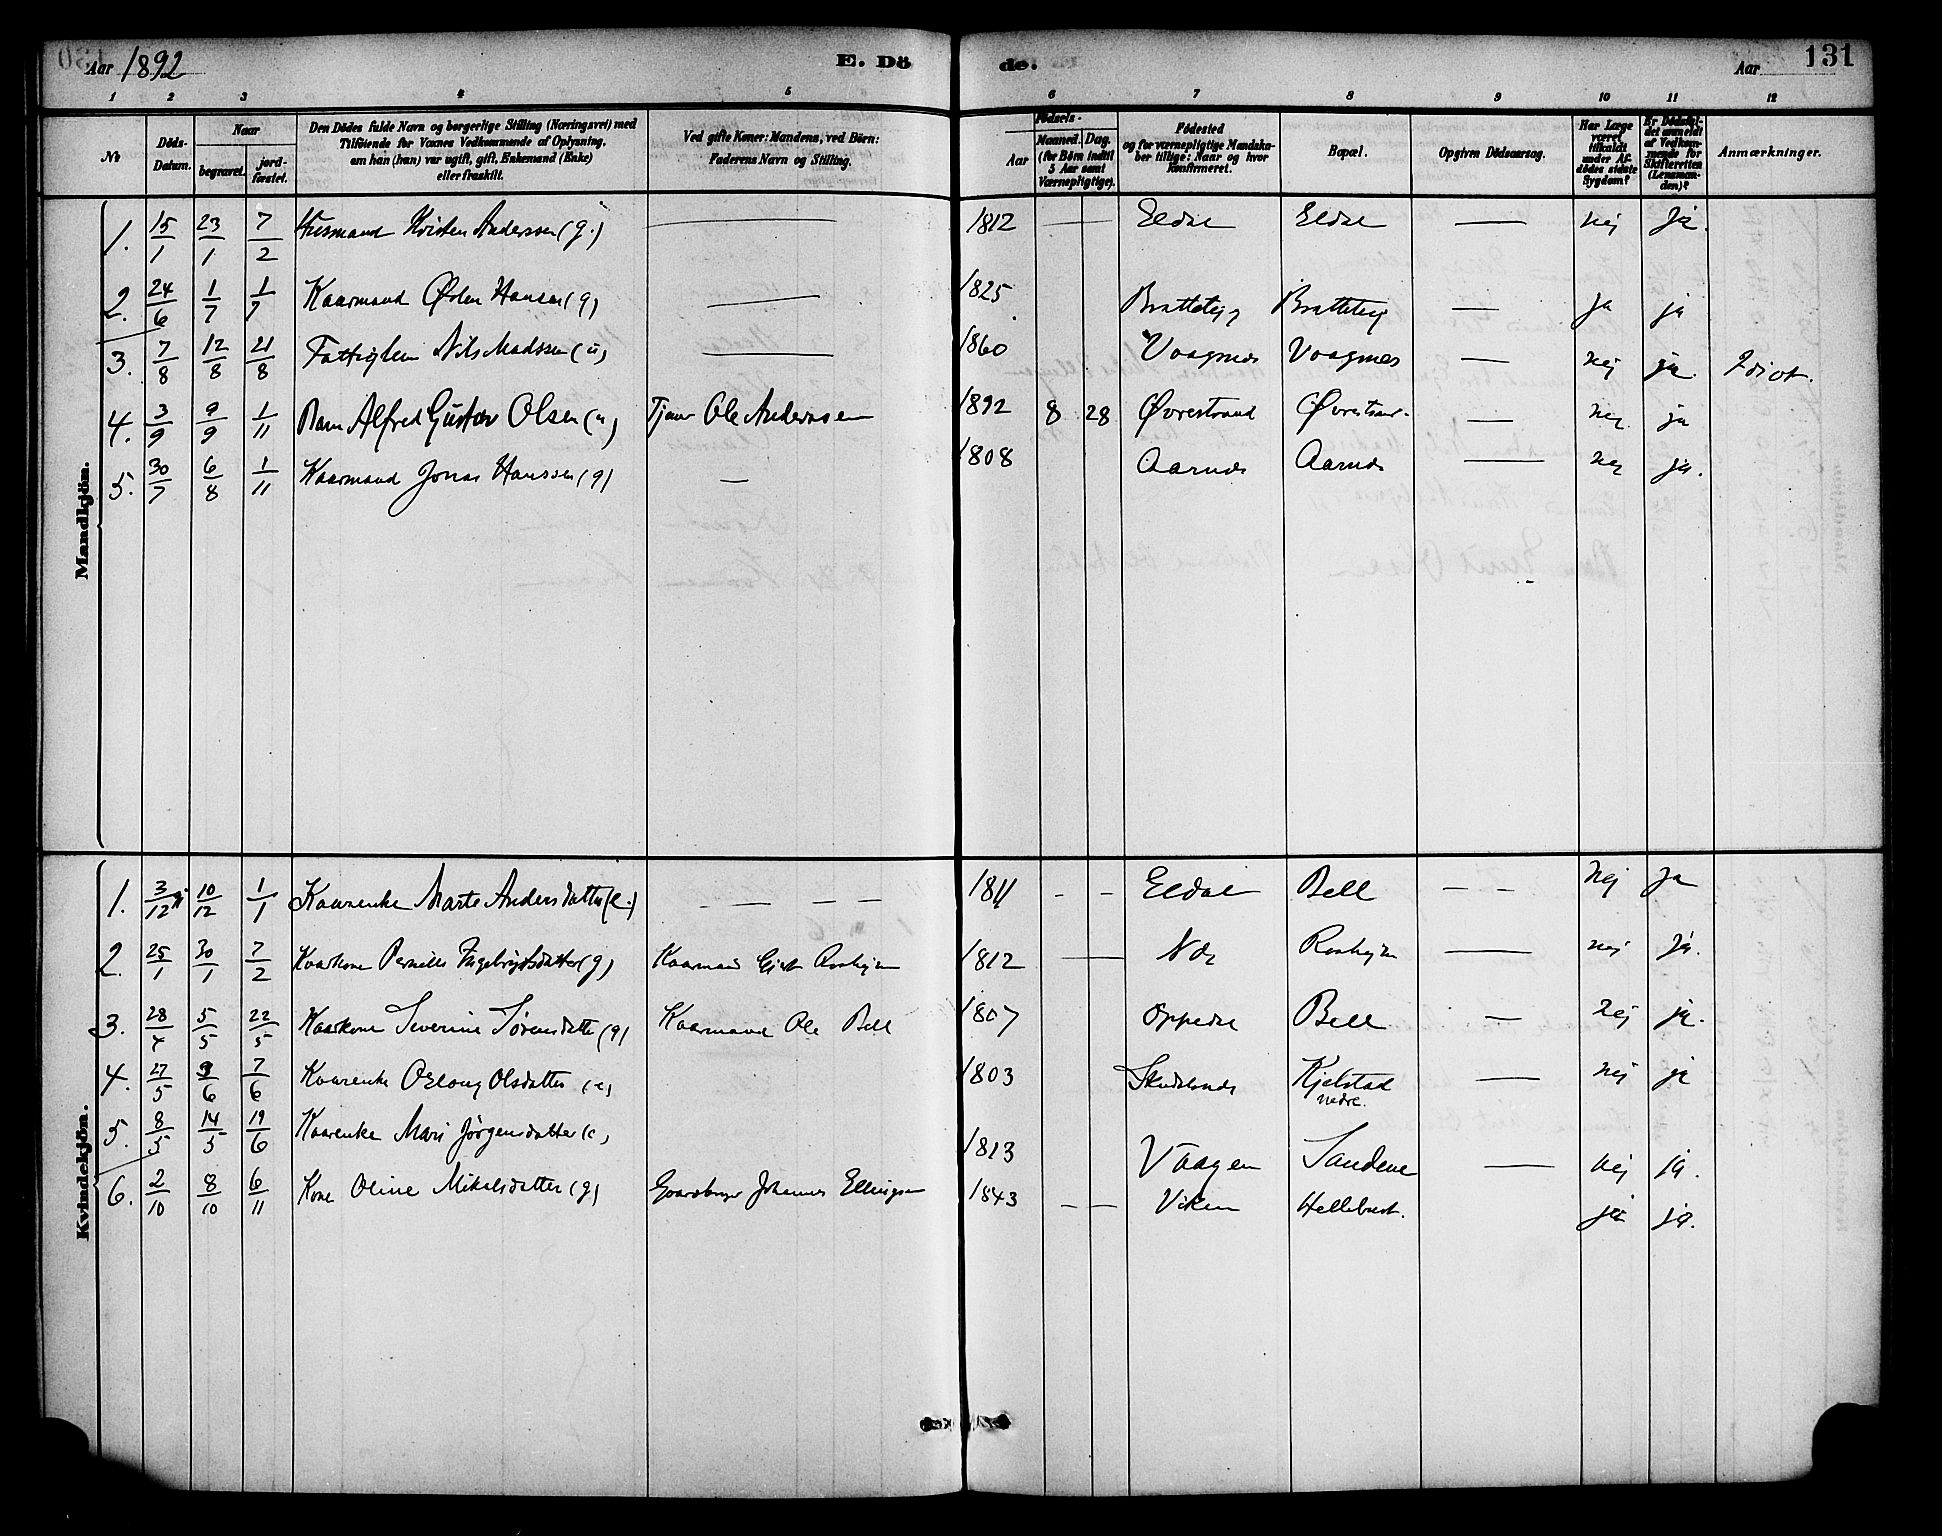 Aar 1892 E. Dö de. Aar 131
1 2 3 4 5 6 7 8 9 10 11 12
№
Döds-Datum.
Naar
begravet.
jord-fæstet.
Den Dödes fulde Navn og borgerlige Stilling (Næringsvei) med Tilföiende for Voxnes Vedkommende af Oplysning, om han (hun) var ugift, gift, Enkemand (Enke) eller fraskilt.
Ved gifte Koner: Mandens, ved Börn: Faderens Navn og Stilling.
Födsels-
Aar
Maaned. Dag.
(for Börn indtil 5 Aar samt Værnepligtige).
Födested og for værnepligtige Mandskaber tillige: Naar og hvor konfirmeret.
Bopæl.
Opgiven Dödsaarsag.
Har Læge været tilkaldt under Afdödes sidste Sygdom?
Er Dödsfaldet anmeldt af Vedkommende for Skifteretten (Lensmanden)?
Anmærkninger.
Mandkjön.
1. 15/1 23/1 7/2 Husmand Kristen Anderssen (g.) — 1812 — — Eldal Eldal — nej Ja.
2. 24/6 1/7 1/7 Kaarmand Østen Hansen (g) — 1825 Bratteteig Bratteteig — ja ja
3. 7/8 12/8 21/8 Fattiglem Nils Madssen (u) — 1860 Vaagnæs Vaagnæs — nej ja Idiot.
4. 3/9 9/9 1/11 Barn Alfred Gustav Olsen (u) Tjener Ole Anderssen 1892 8 28 Øvrestrand Øvrestrand — nej ja
5. 30/7 6/8 1/11 Kaarmand Jonas Hanssen (g) — 1808 Aarnæs Aarnæs — nej ja.
Kvindekjön.
1. 3/12 10/12 1/1 Kaarenke Marte Andersdatter (e.) — — — — 1811 - - Eldal Bell — — Nej Ja
2. 25/1 30/1 7/2 Kaarkone Pernille Ingebrigtsdatter (g) Kaarmand 1812 — — — nej Ja.
3. 28/4 5/5 22/5 Kaarkone Severine Sørensdatter (g) Kaarmand Ole Bell 1807 Oppedal Bell — nej ja.
4. 27/5 3/6 7/6 Kaarenke Olsdatter (e) 1803 Kjelstad nedre. — nej ja
5. 8/5 14/5 19/6 Kaarenke Mari Jørgensdatter (e) 1813 Vaagen Sandene — nej ja.
6. 2/10 8/10 6/11 Kone Oline Mikalsdatter (g) Gaardbruger Johannes Ellingsen 1843 - - Viken Hellebust. — ja ja.